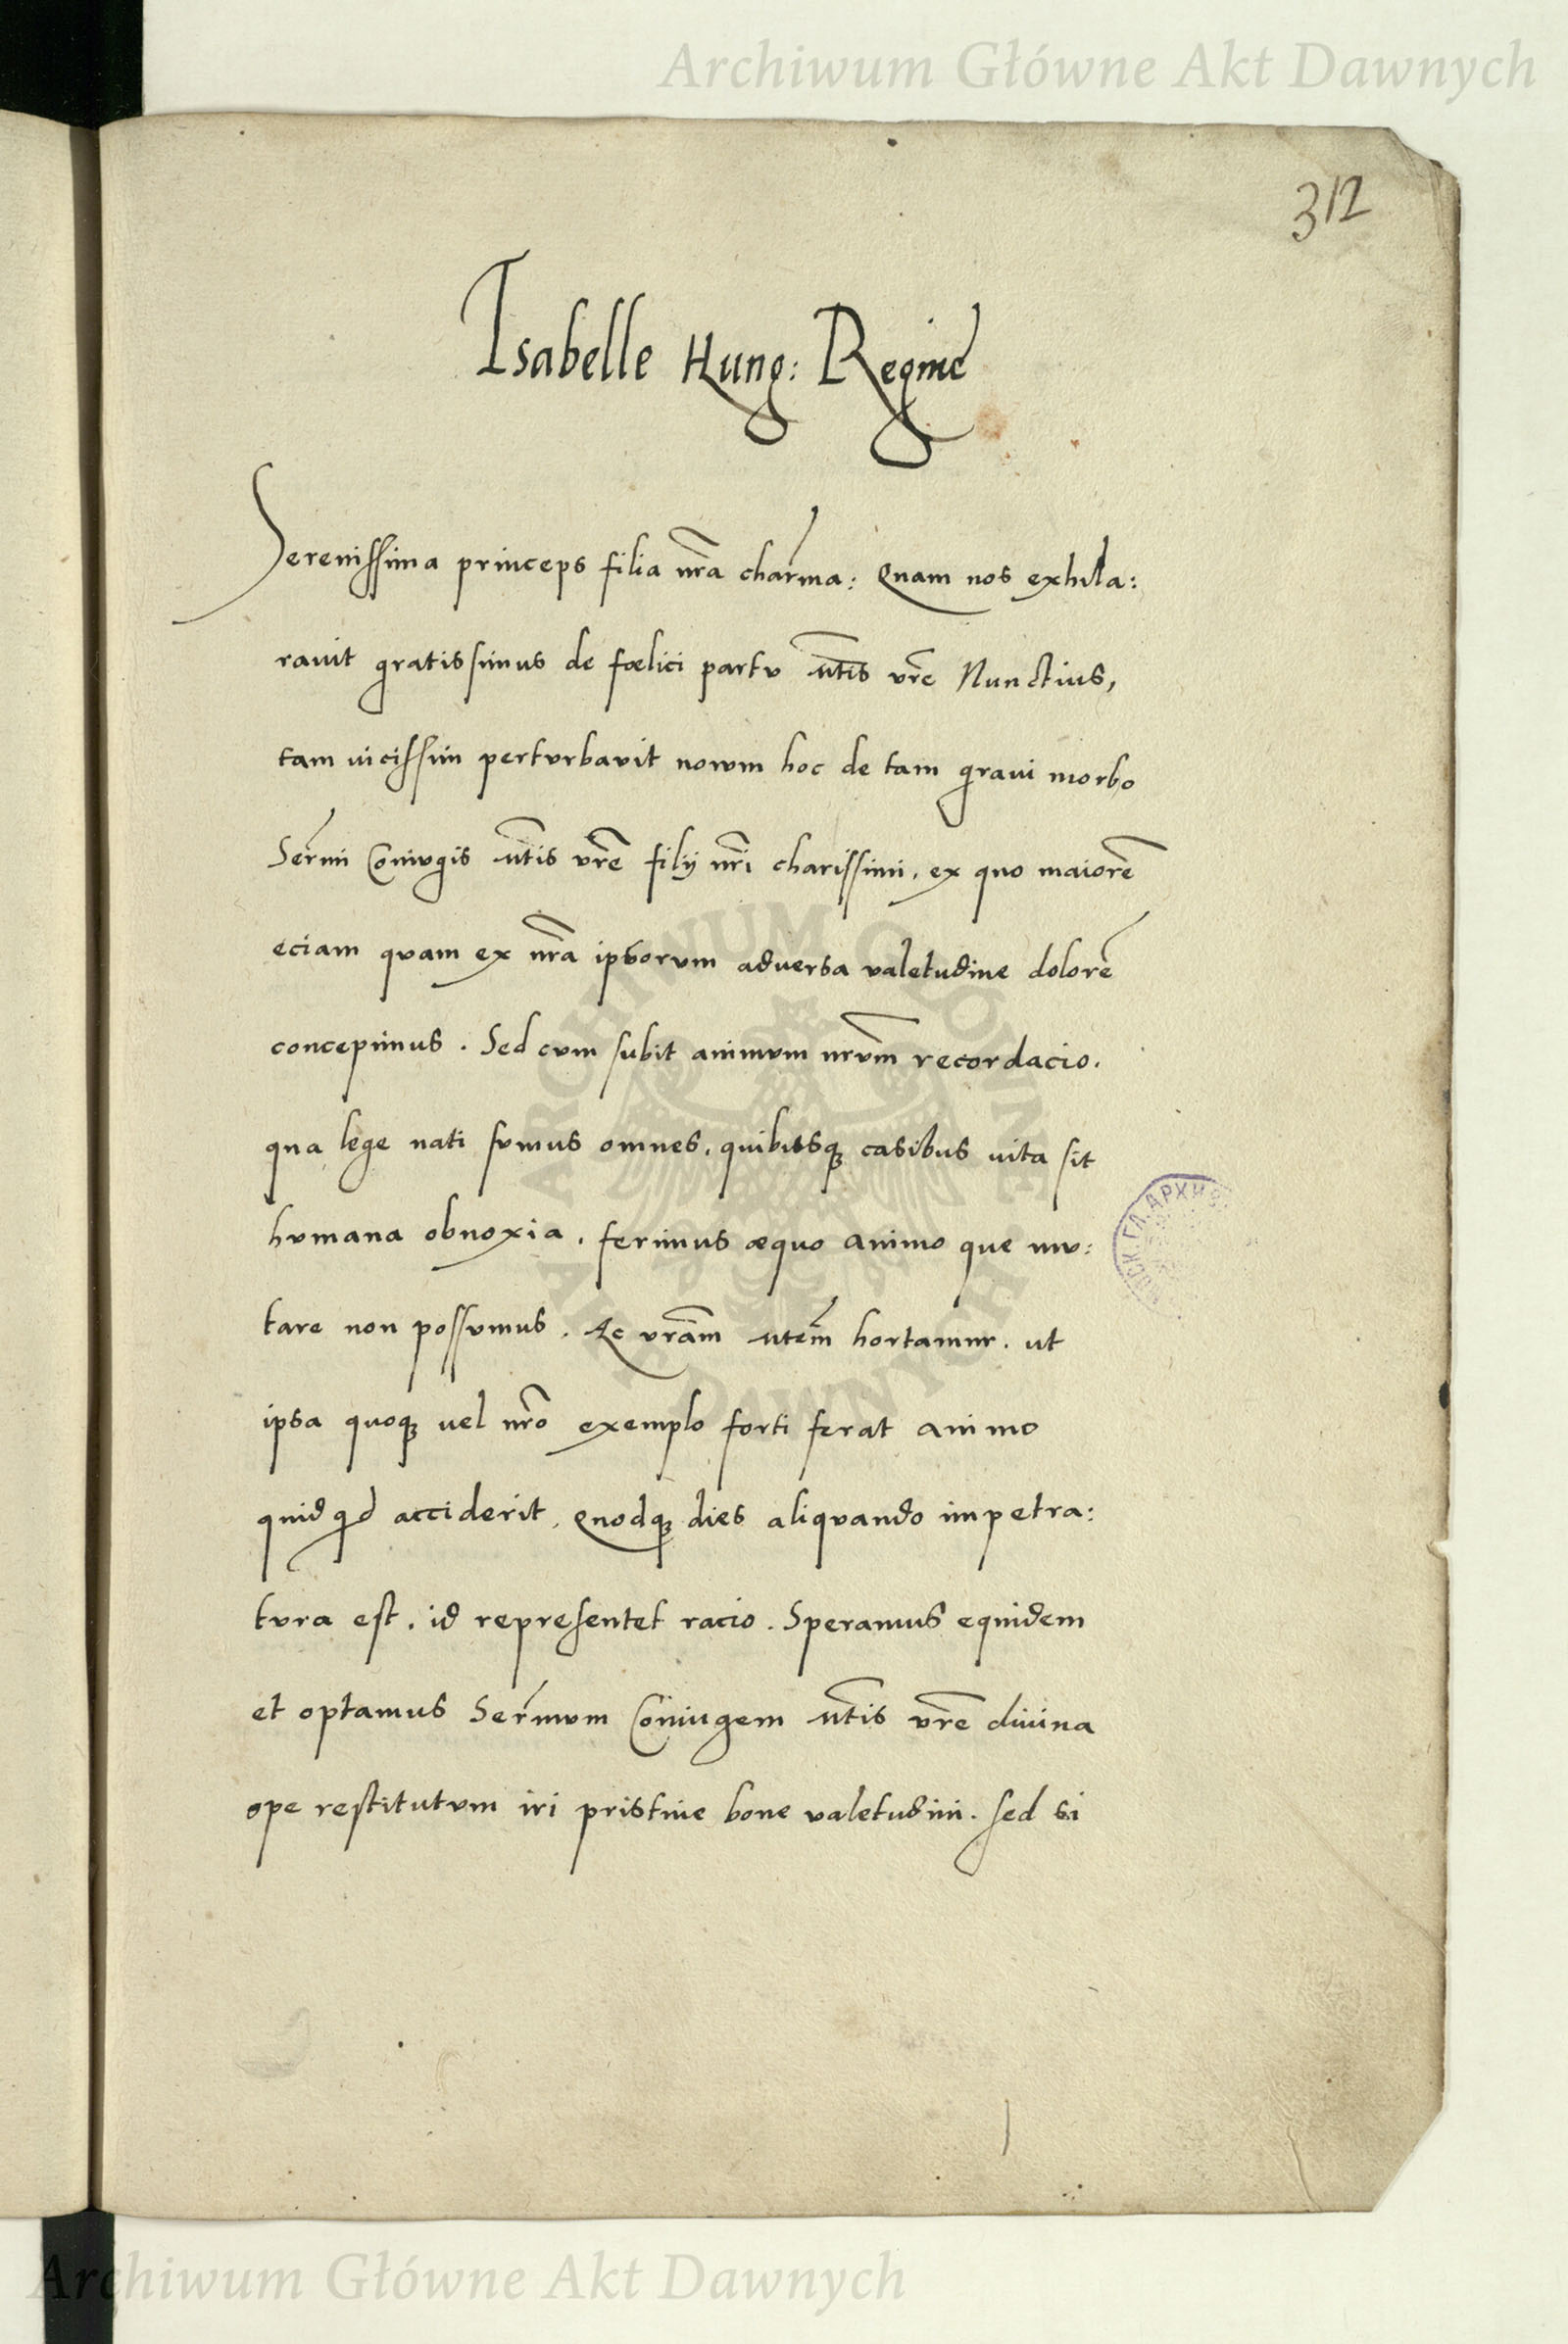 Archiwum Główne Akt Dawnych
312
Isabelle Hung: Regine
Serenissima princeps filia nr̃a char̃ma: Quam nos exhila:
rauit gratissimus de fœlici partu Mt̃is vr̃e Nunctius,
tam uicissim perturbavit novum hoc de tam graui morbo
Ser̃mi Coniugis Mt̃is vr̃e filij nr̃i charissimi, ex quo maiorẽ
eciam quam ex nr̃a ipsorum adversa valetudine dolorẽ
concepimus. Sed cum subit animum nr̃vm recordacio.
qua lege nati sumus omnes, quibusq; casibus uita sit
humana obnoxia, ferimus æquo animo que mu:
tare non possumus. Ac vrãm Mtẽm hortamur. ut
ipsa quoq; uel nr̃o exemplo forti ferat animo
quidqd acciderit, Quodq; dies aliquando impetra:
tura est, id representet racio. Speramus equidem
et optamus Ser̃mvm Coniugem Mt̃is vr̃e diuina
ope restitutum iri pristine bone valetudini. sed si
ARCHIWUM GŁÓWNE AKT DAWNYCH
ГЛ. АРХИВ
Archiwum Główne Akt Dawnych